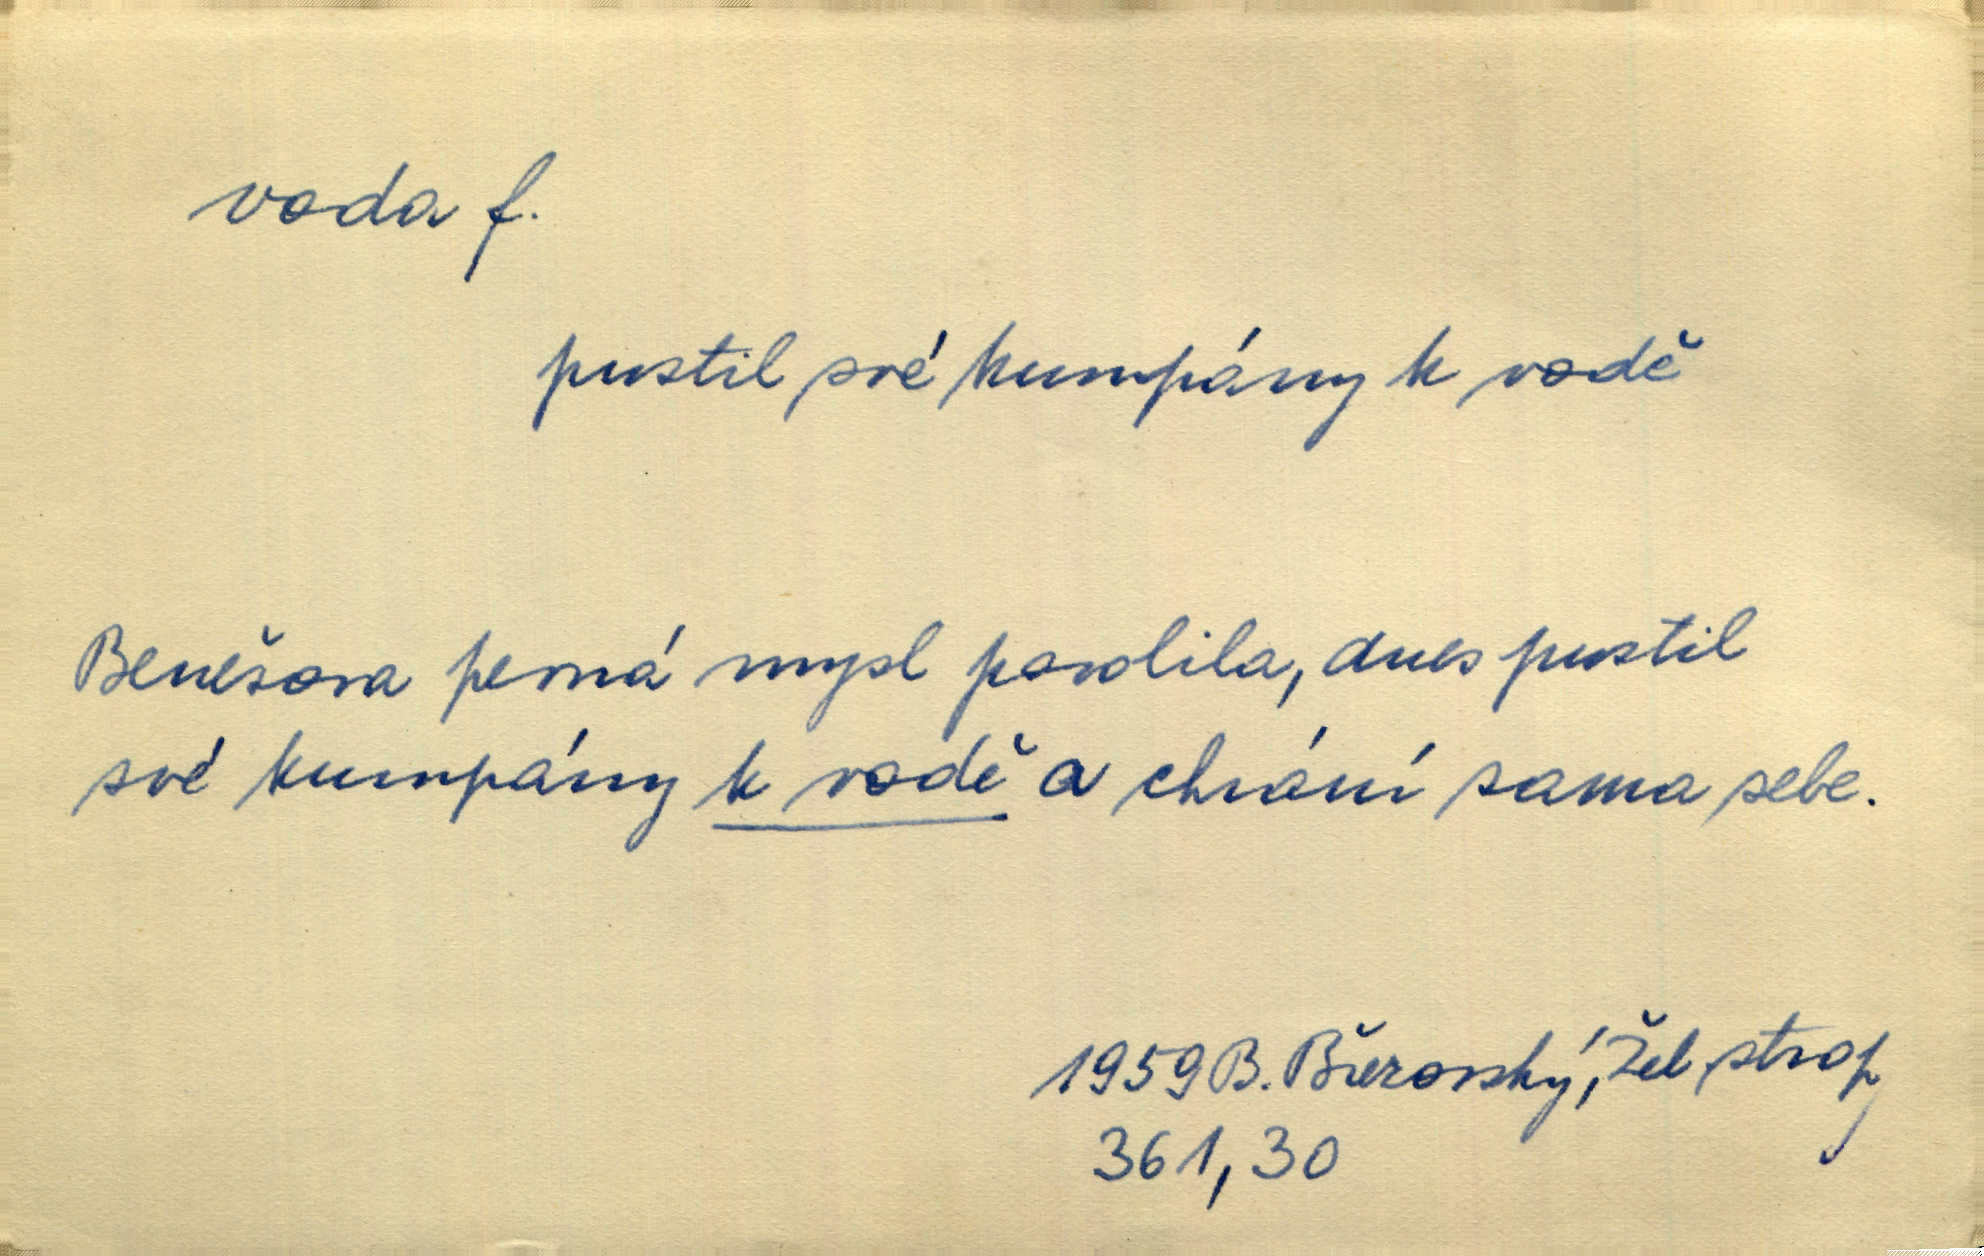 voda f.
pustil své kumpány k vodě
Benešova pevná mysl povolila, dnes pustil
své kumpány k vodě a chrání sama sebe.
1959 B. Březovský, Žel. strop
361, 30